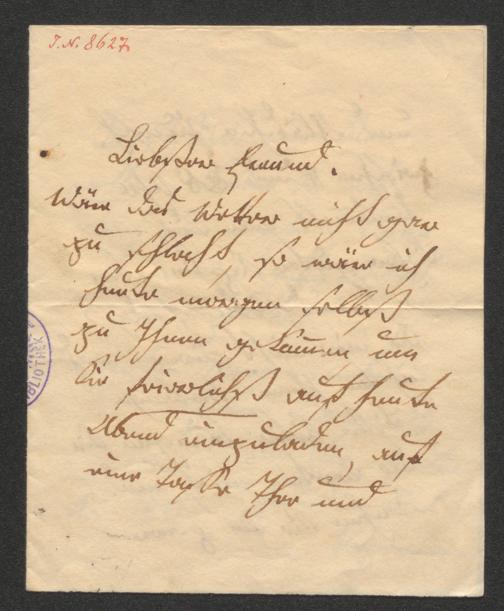 J.N. 8627
Liebster Freund.
Wäre das Wetter nicht gar
zu schlecht, so wäre ich
heute morgen selbst
zu Ihnen gekommen um
Sie feierlichst auf heute
Abend einzuladen, auf
eine Tasse Thee und
BIBLIOTHEK